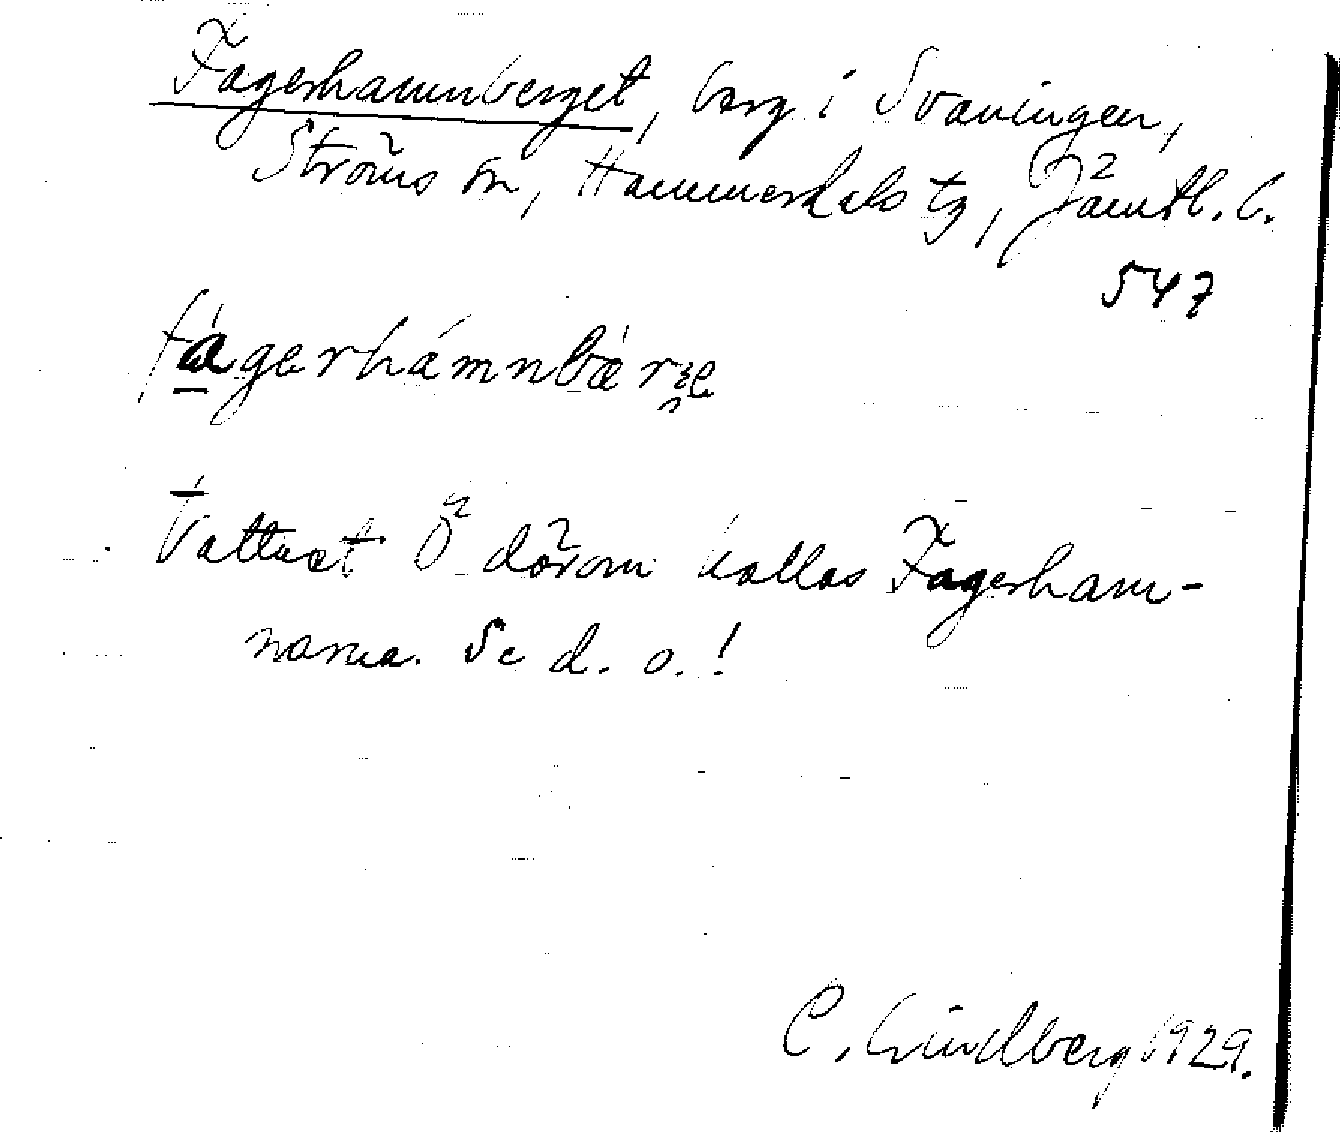 Fagerhamnberget, berg i Svaningen,
Ströms sn, Hammerdals tg, Jämtl. l.
547
fágerhámnbǽrʒe
Vattnet Ö därom kallas Fagerham-
narna. Se d. o.!
C. Lindberg 1929.